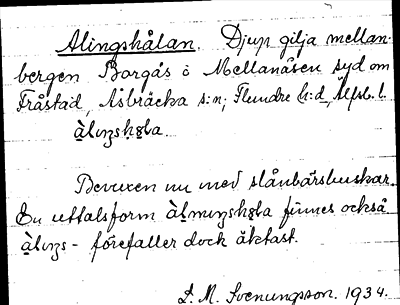 Alingshålan. Djup gilja mellan
bergen Borgås o Mellanåsen syd om
Fråstad, Åsbräcka s:n, Flundre h:d, Älfsb. l.
Bevuxen nu med slånbärsbuskar.
En uttalsform finnes också
- förefaller dock äktast.
S. M. Svenungsson. 1934.